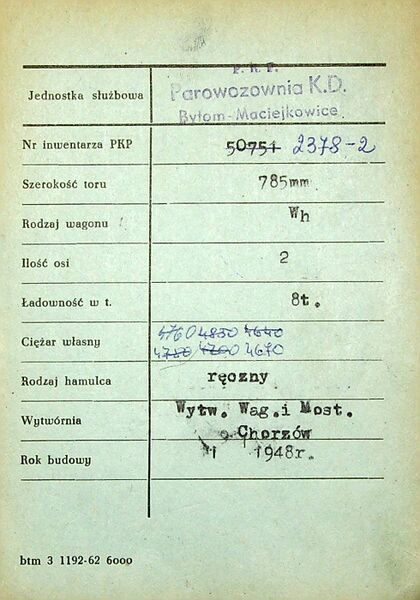 P. K. P.
Jednostka służbowa Parowozownia K.D.
Bytom-Maciejkowice
Nr inwentarza PKP 50751 2378-2
Szerokość toru 785mm
Rodzaj wagonu Wh
Ilość osi 2
Ładowność w t. 8t.
Ciężar własny 4760 4830 4640
4780 4700 4670
Rodzaj hamulca ręczny
Wytwórnia Wytw. Wag.i Most.
Chorzów
Rok budowy 1948r.
btm 3 1192-62 6000